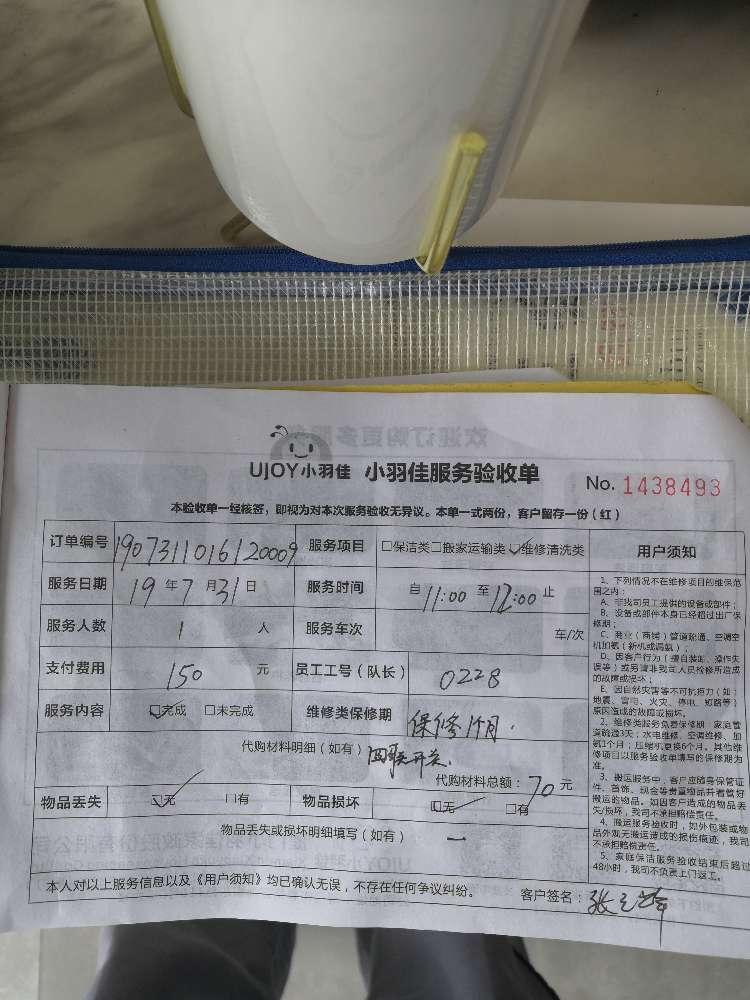 UJOY小羽佳 小羽佳服务验收单 No. 1438493
本验收单一经核签，即视为对本次服务验收无异议。本单一式两份，客户留存一份（红）
订单编号 1907311016120009 服务项目 □保洁类□搬家运输类☑维修清洗类 用户须知
服务日期 19年7月31日 服务时间 自11:00至12:00止
服务人数 1 人 服务车次 车/次
支付费用 150 元 员工工号（队长） 0228
服务内容 ☑完成 □未完成 维修类保修期 保修1个月.
代购材料明细（如有） 四联开关.
代购材料总额：70元
物品丢失 ☑无 □有 物品损坏 ☑无 □有
物品丢失或损坏明细填写（如有） 一
本人对以上服务信息以及《用户须知》均已确认无误，不存在任何争议纠纷。 客户签名：张
1、下列情况不在维修项目的维保范
围之内：
A、非我司员工提供的设备或部件；
B、设备或部件本身已经超过出厂保
修期；
C、商业（商铺）管道疏通、空调空
机加氨（新机或漏氨）；
D、因客户行为（擅自装卸、操作失
误等）或另请非我司人员检修所造成
的故障或损坏；
E、因自然灾害等不可抗拒力（如：
地震、雷电、火灾、停电、短路等）
原因造成的故障或损坏。
2、维修类服务免费保修期：家庭管
道疏通3天；水电维修、空调维修、加
氨1个月；压缩机更换6个月。其他维
修项目以服务验收单填写的保修期为
准。
3、搬运服务中，客户应随身保管证
件、首饰、现金等贵重物品并看管好
搬运的物品。如因客户造成的物品丢
失/损坏，我司不承担赔偿责任。
4、搬运服务验收时，如外包装或物
品外观无搬运造成的损伤痕迹，我司
不承担赔偿责任。
5、家庭保洁服务验收结束后超过
48小时，我司不负责上门返工。